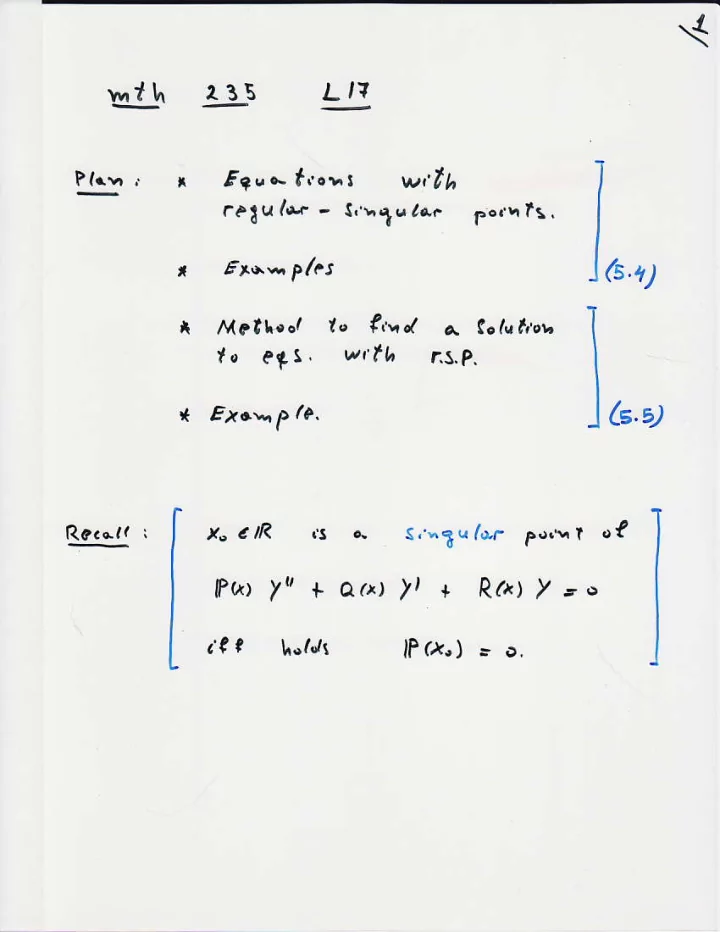 1
mth 235 L17
Plan: * Equations with
regular-singular points.
* Examples
(5.4)
* Method to find a solution
to eqs. with r.s.p.
* Example.
(5.5)
Recall: x₀ ∈ ℝ is a singular point of
P(x) y'' + Q(x) y' + R(x) y = 0
iff holds P(x₀) = 0.